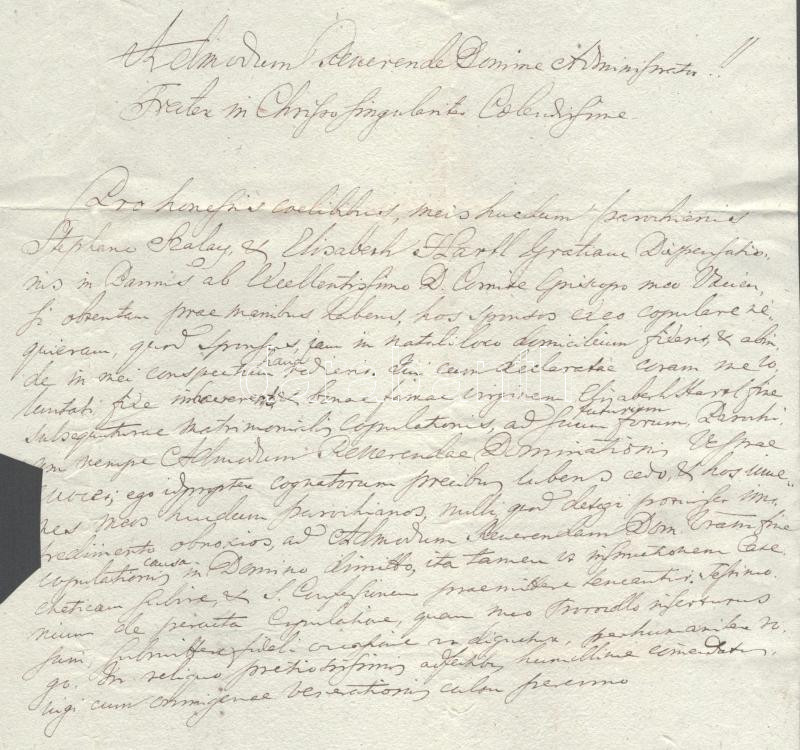 Admodum Reverende Domine Administrator!!
Frater in Christo singulariter Colendissime
Pro honestis coelibibus, meis hucdum parochianis
Stephano Szalay, & Elisabeth Hartl Gratiam Dispensatio-
nis in Bannis ab Excellentissimo D. Comite Episcopo meo
obtentam prae manibus habens, hos sponsos ex eo copulare ne-
quieram, quod sponsus, jam in natali loco domicilium fixeris, & abin-
de in mei conspectum haud redieris. Qui cum declaratae coram me vo-
luntati fixe & bonae famae virginem Elisabeth Hartl fine
subsequuturae matrimonialis copulationis, ad suum futurum forum, Parochi-
am nempe Admodum Reverendae Dominationis Vestrae
ego idpropter cognatorum precibus lubens cedo, & hos juve-
nes meos hucdum parochianos, nulli, quod detegi potuisset im-
pedimento obnoxios, ad Admodum Reverendam Dom. Vram fine
copulationis causa in Domino dimitto, ita tamen ut instructionem Cate-
cheticam subire, & S. Confessionem praemittere teneantur. Testimo-
nium de peracta Copulatione, quam meo Protocollo inserturus
sum, submittere fideli occasione ut dignetur, perhumaniter ro-
go. In reliquo pretiosissimis affectibus humillime comendatus,
jugi cum omnigenae venerationis cultu persevero